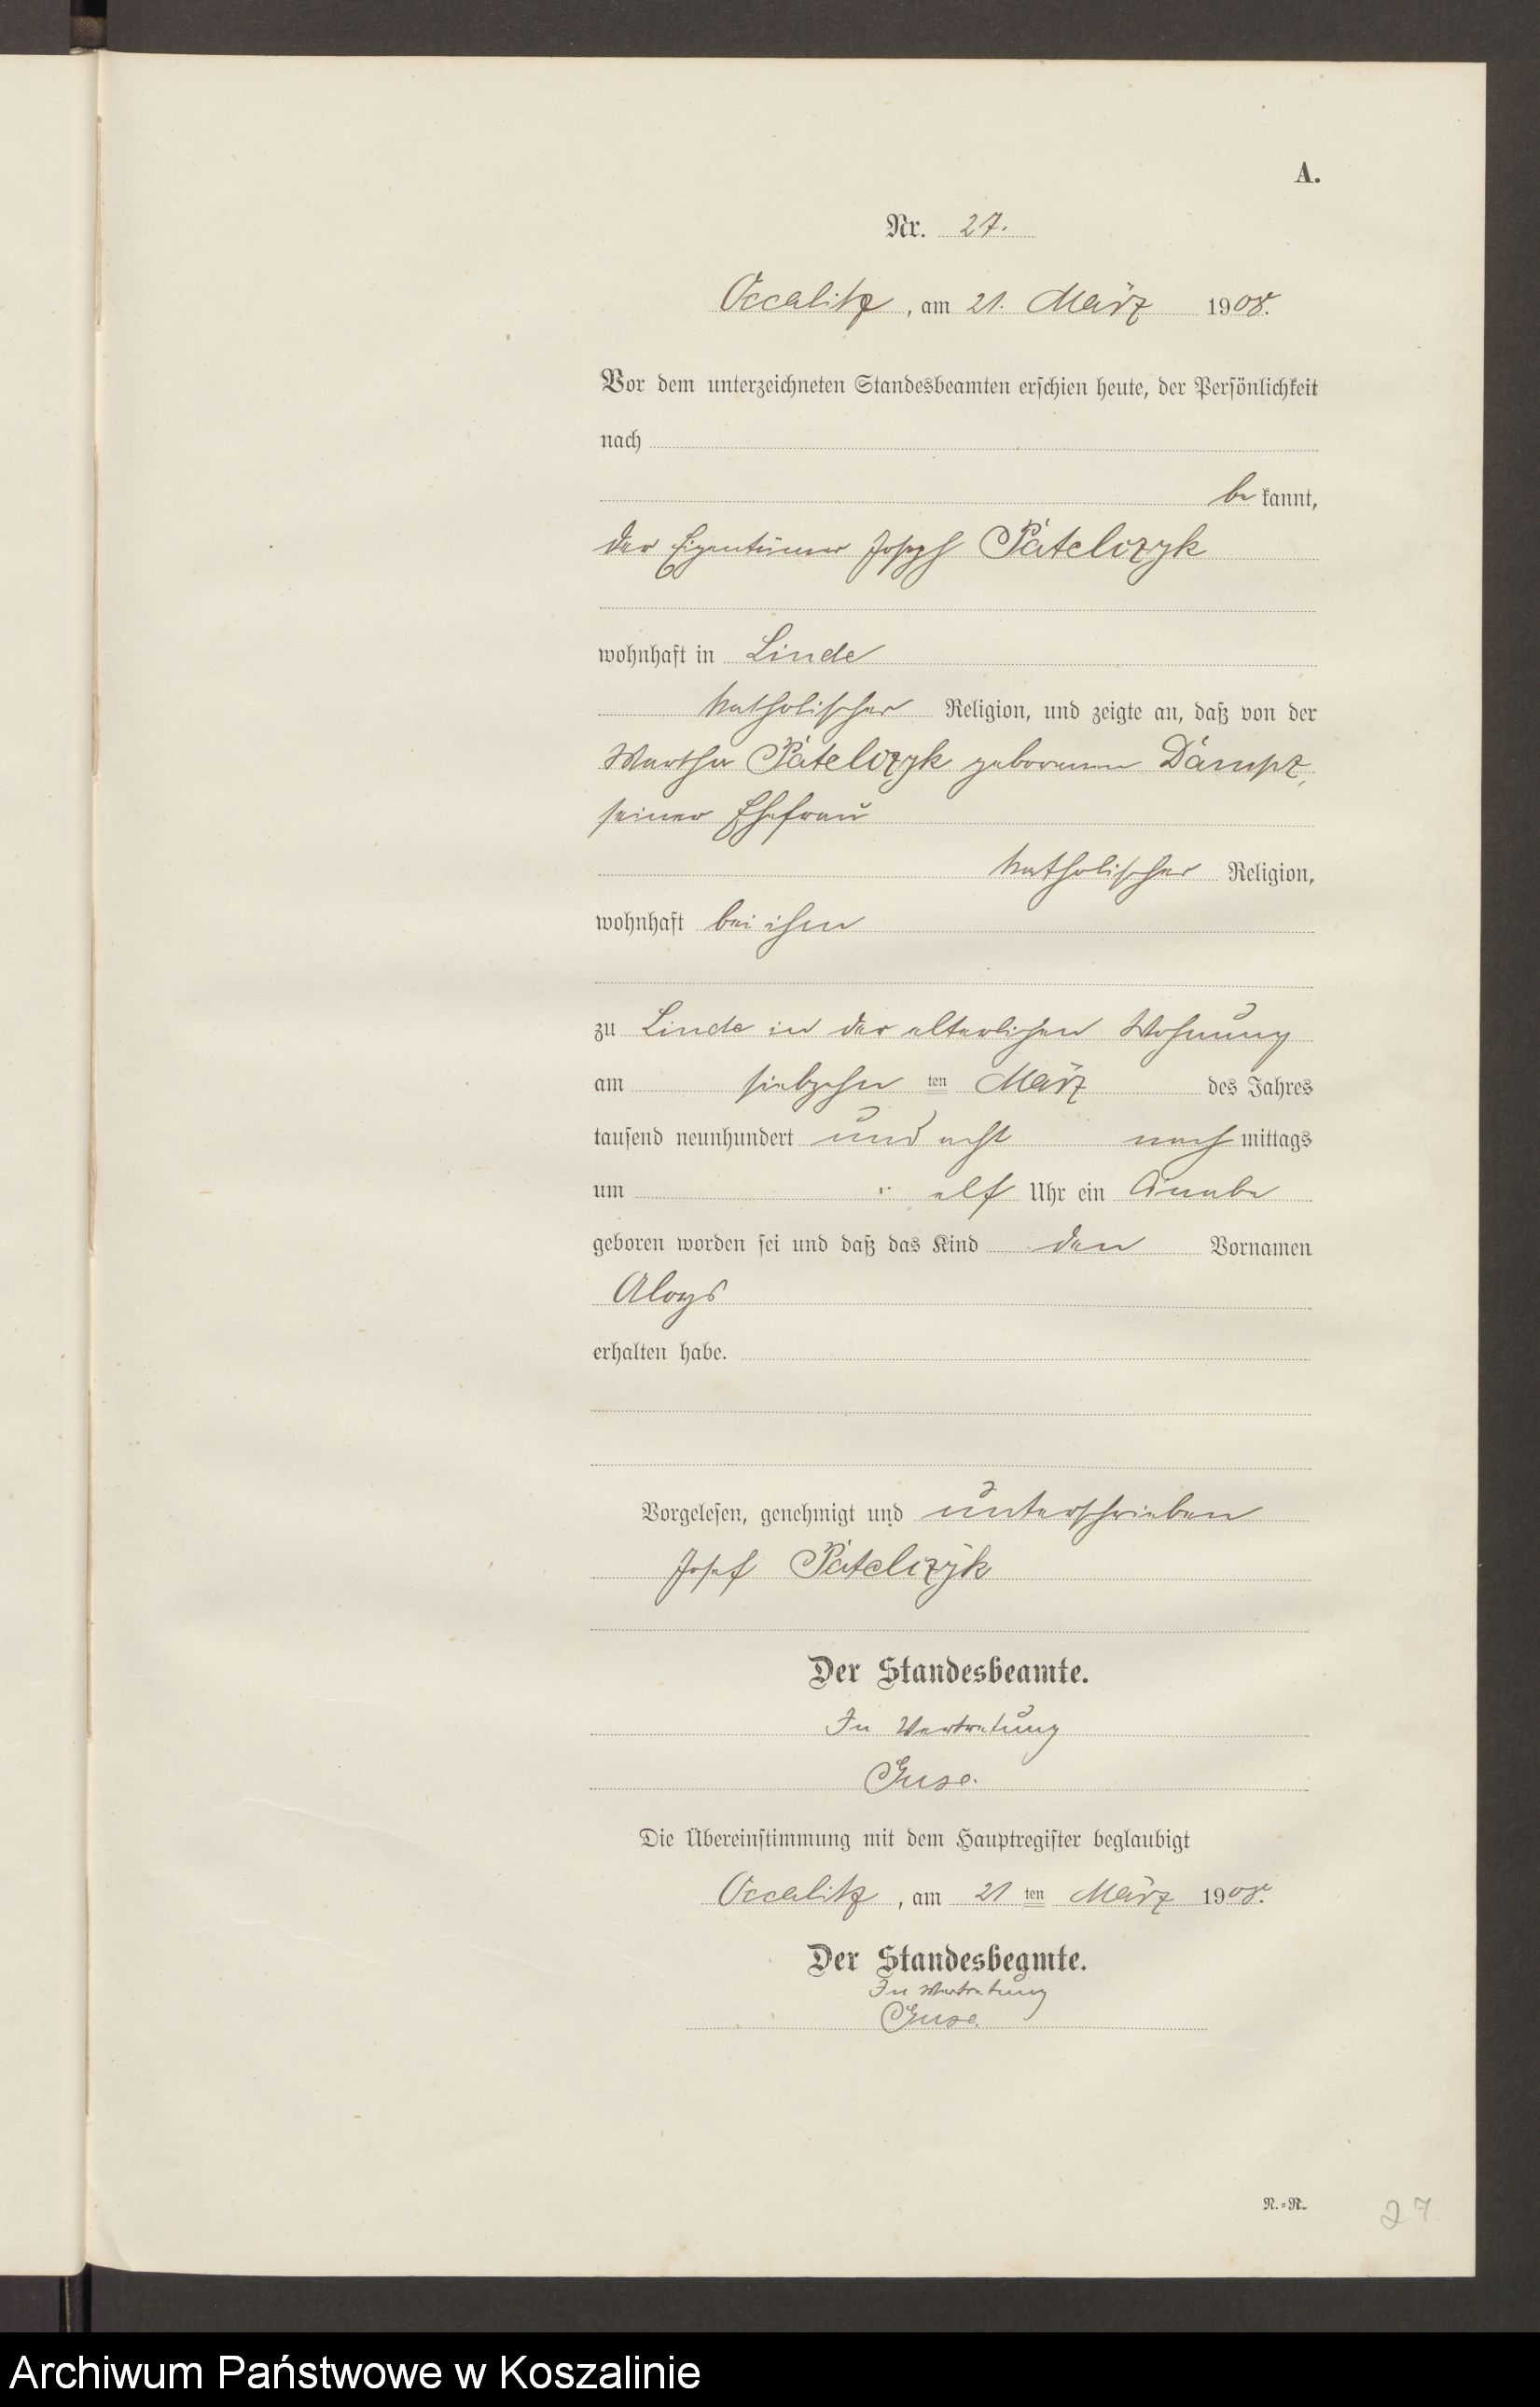 A.
Nr. 27.
Occalitz, am 21. März 1908.
Vor dem unterzeichneten Standesbeamten erschien heute, der Persönlichkeit
nach
be kannt,
der Eigentümer Joseph Patelczyk
wohnhaft in Linde
katholischer Religion, und zeigte an, daß von der
Martha Patelczyk geborenen Dampz,
seiner Ehefrau
katholischer Religion,
wohnhaft bei ihm
zu Linde in der elterlichen Wohnung
am siebzehn ten März des Jahres
tausend neunhundert und acht nach mittags
um elf Uhr ein Knabe
geboren worden sei und daß das Kind den Vornamen
Aloys
erhalten habe.
Vorgelesen, genehmigt und unterschrieben
Josef Patelczyk
Der Standesbeamte.
In Vertretung
Guse.
Die Übereinstimmung mit dem Hauptregister beglaubigt
Occalitz, am 21 ten März 1908.
Der Standesbeamte.
In Vertretung
Guse.
N.=R.
27
Archiwum Państwowe w Koszalinie